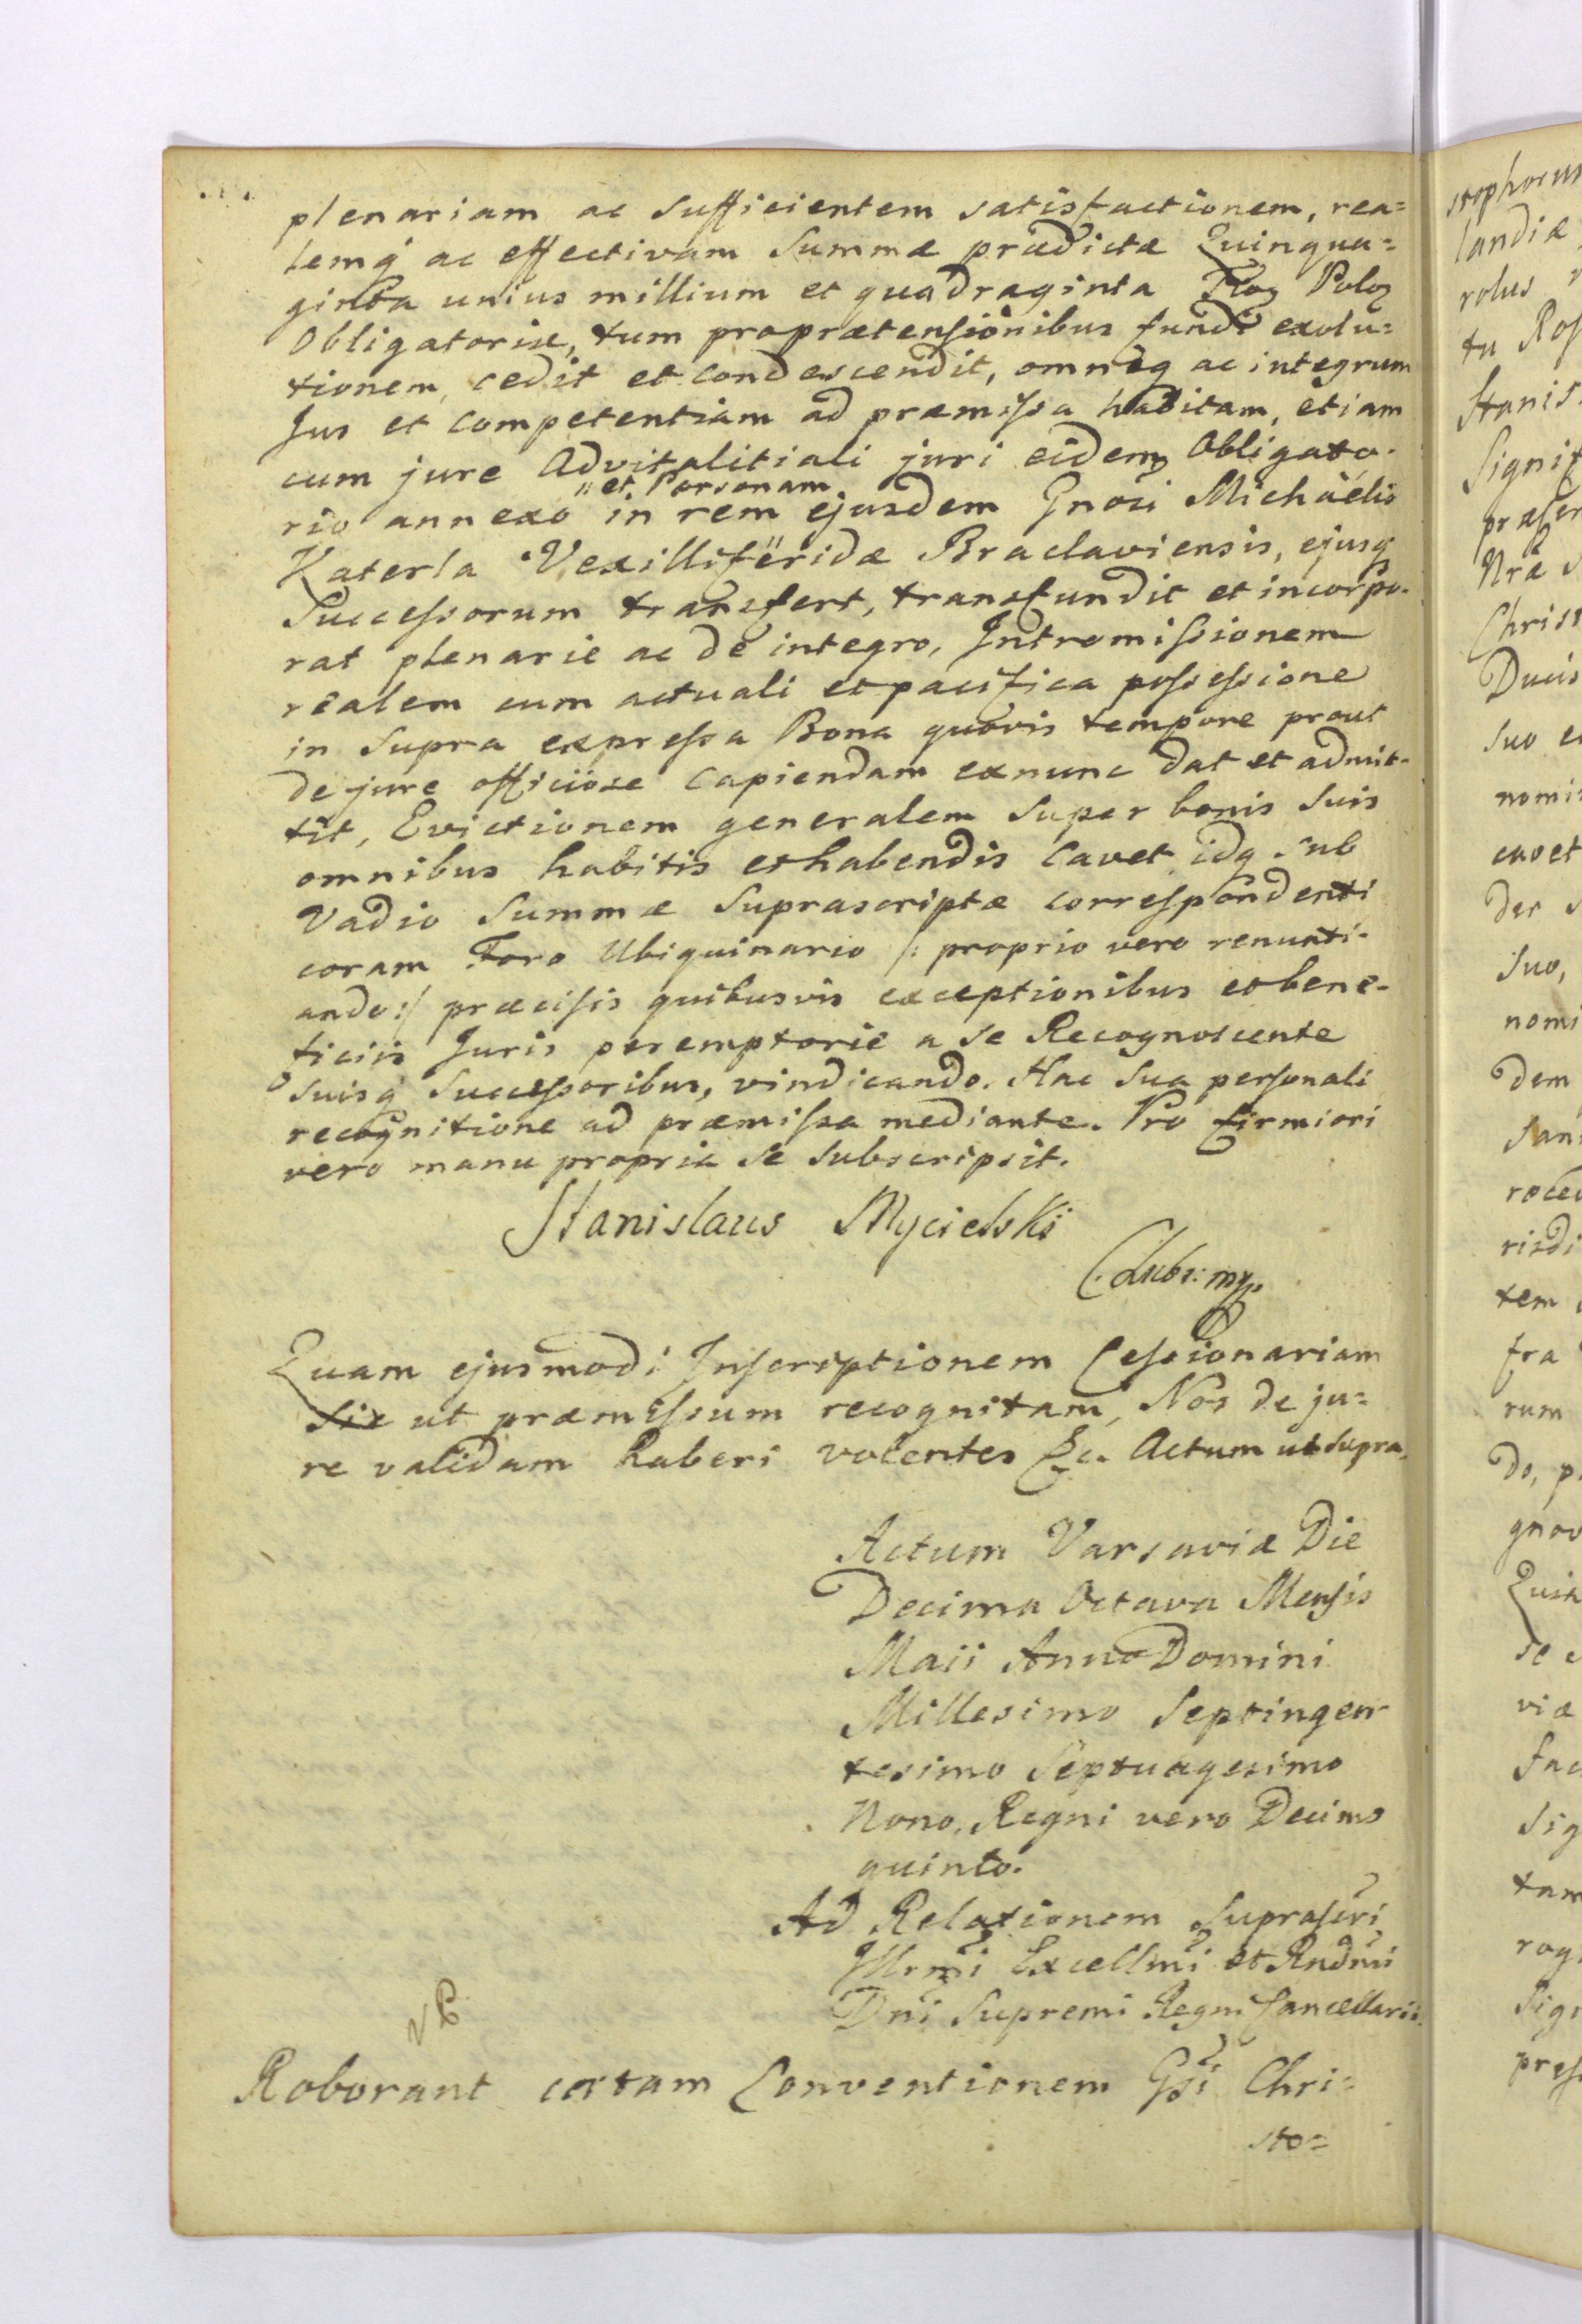 plenariam ac sufficientem satisfactionem, rea=
lemq ac effectivam Summæ prædictæ Quinqua=
ginta unius millium et quadraginta Floꝝ Poloꝝ
Obligatoriæ, tum proprætensionibus fundi exolu=
tionem, cedit et condescendit, omneq ac integrum
Jus et competentiam ad præmissa habitam, etiam
cum jure Advitalitiali juri eidem Obligato-
"et Personam
rio annexo in rem ejusdem Gnosi Michaëlis
Katerla Vexilliferidæ Braclaviensis, ejusq
Successorum transfert, transfundit et incorpo-
rat plenarie ac de integro, Intromissionem
realem cum actuali et pacifica possessione
in supra expressa Bona quovis tempore prout
de jure officiose capiendam exnunc dat et admit-
tit, Evictionem generalem super bonis suis
omnibus habitis et habendis cavet idq sub
Vadio Summæ suprascriptæ correspondenti
coram Foro Ubiquinario /: proprio vero renunti-
ando :/ præcisis quibusvis exceptionibus et bene-
ficiis Juris peremptorie a se Recognoscente
suisq Successoribus, vindicando. Hac sua personali
recognitione ad præmissa mediante. Pro firmiori
vero manu propria se subscripsit.
Stanislaus Mycielski
C. Lubs: mp.
Quam ejusmodi Inscriptionem Cessionariam
sic ut præmissum recognitam, Nos de ju=
re validam haberi volentes &c. Actum ut supra.
Actum Varsaviæ Die
Decima Octava Mensis
Maii Anno Domini
Millesimo Septingen-
tesimo Septuagesimo
Nono, Regni vero Decimo
quinto.
Ad Relationem suprascri
Illrmi Excellmi et Rndmi
Dni Supremi Regni Cancellarii.
Roborant certam Conventionem Gsi Chri=
sto=
stophorus
landiæ
rolus
tu Ros
Stanis
Signif
præser
Nræ
Chris
Ducis
suo
nomi
cavet
der
suo,
nomi
dem
san
roceu
risdi
tem
fra
rum
do, p
gnov
Quia
se
viæ
fac
sig
tam
rog
sig
pres